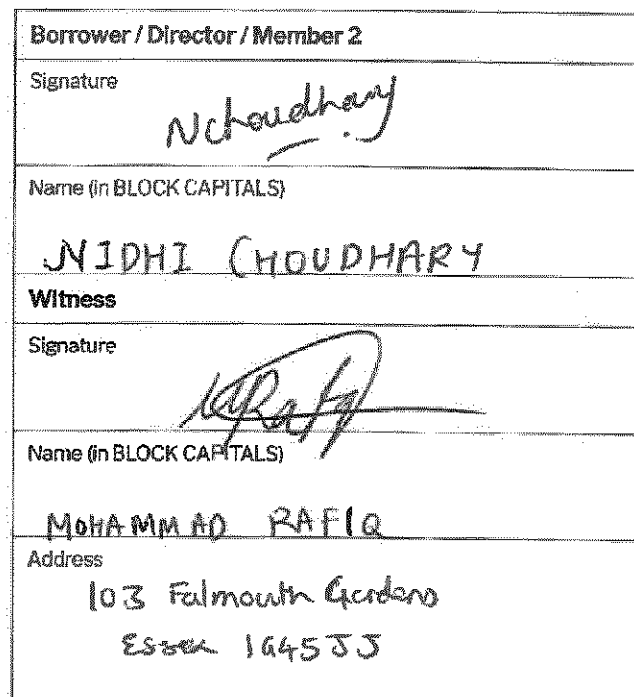 Borrower / Director / Member 2
Signature
Nchoudhary
Name (in BLOCK CAPITALS)
NIDHI CHOUDHARY
Witness
Signature
MRafiq
Name (in BLOCK CAPITALS)
MOHAMMAD RAFIQ
Address
103 Falmouth Gardens
Essex IG45JJ